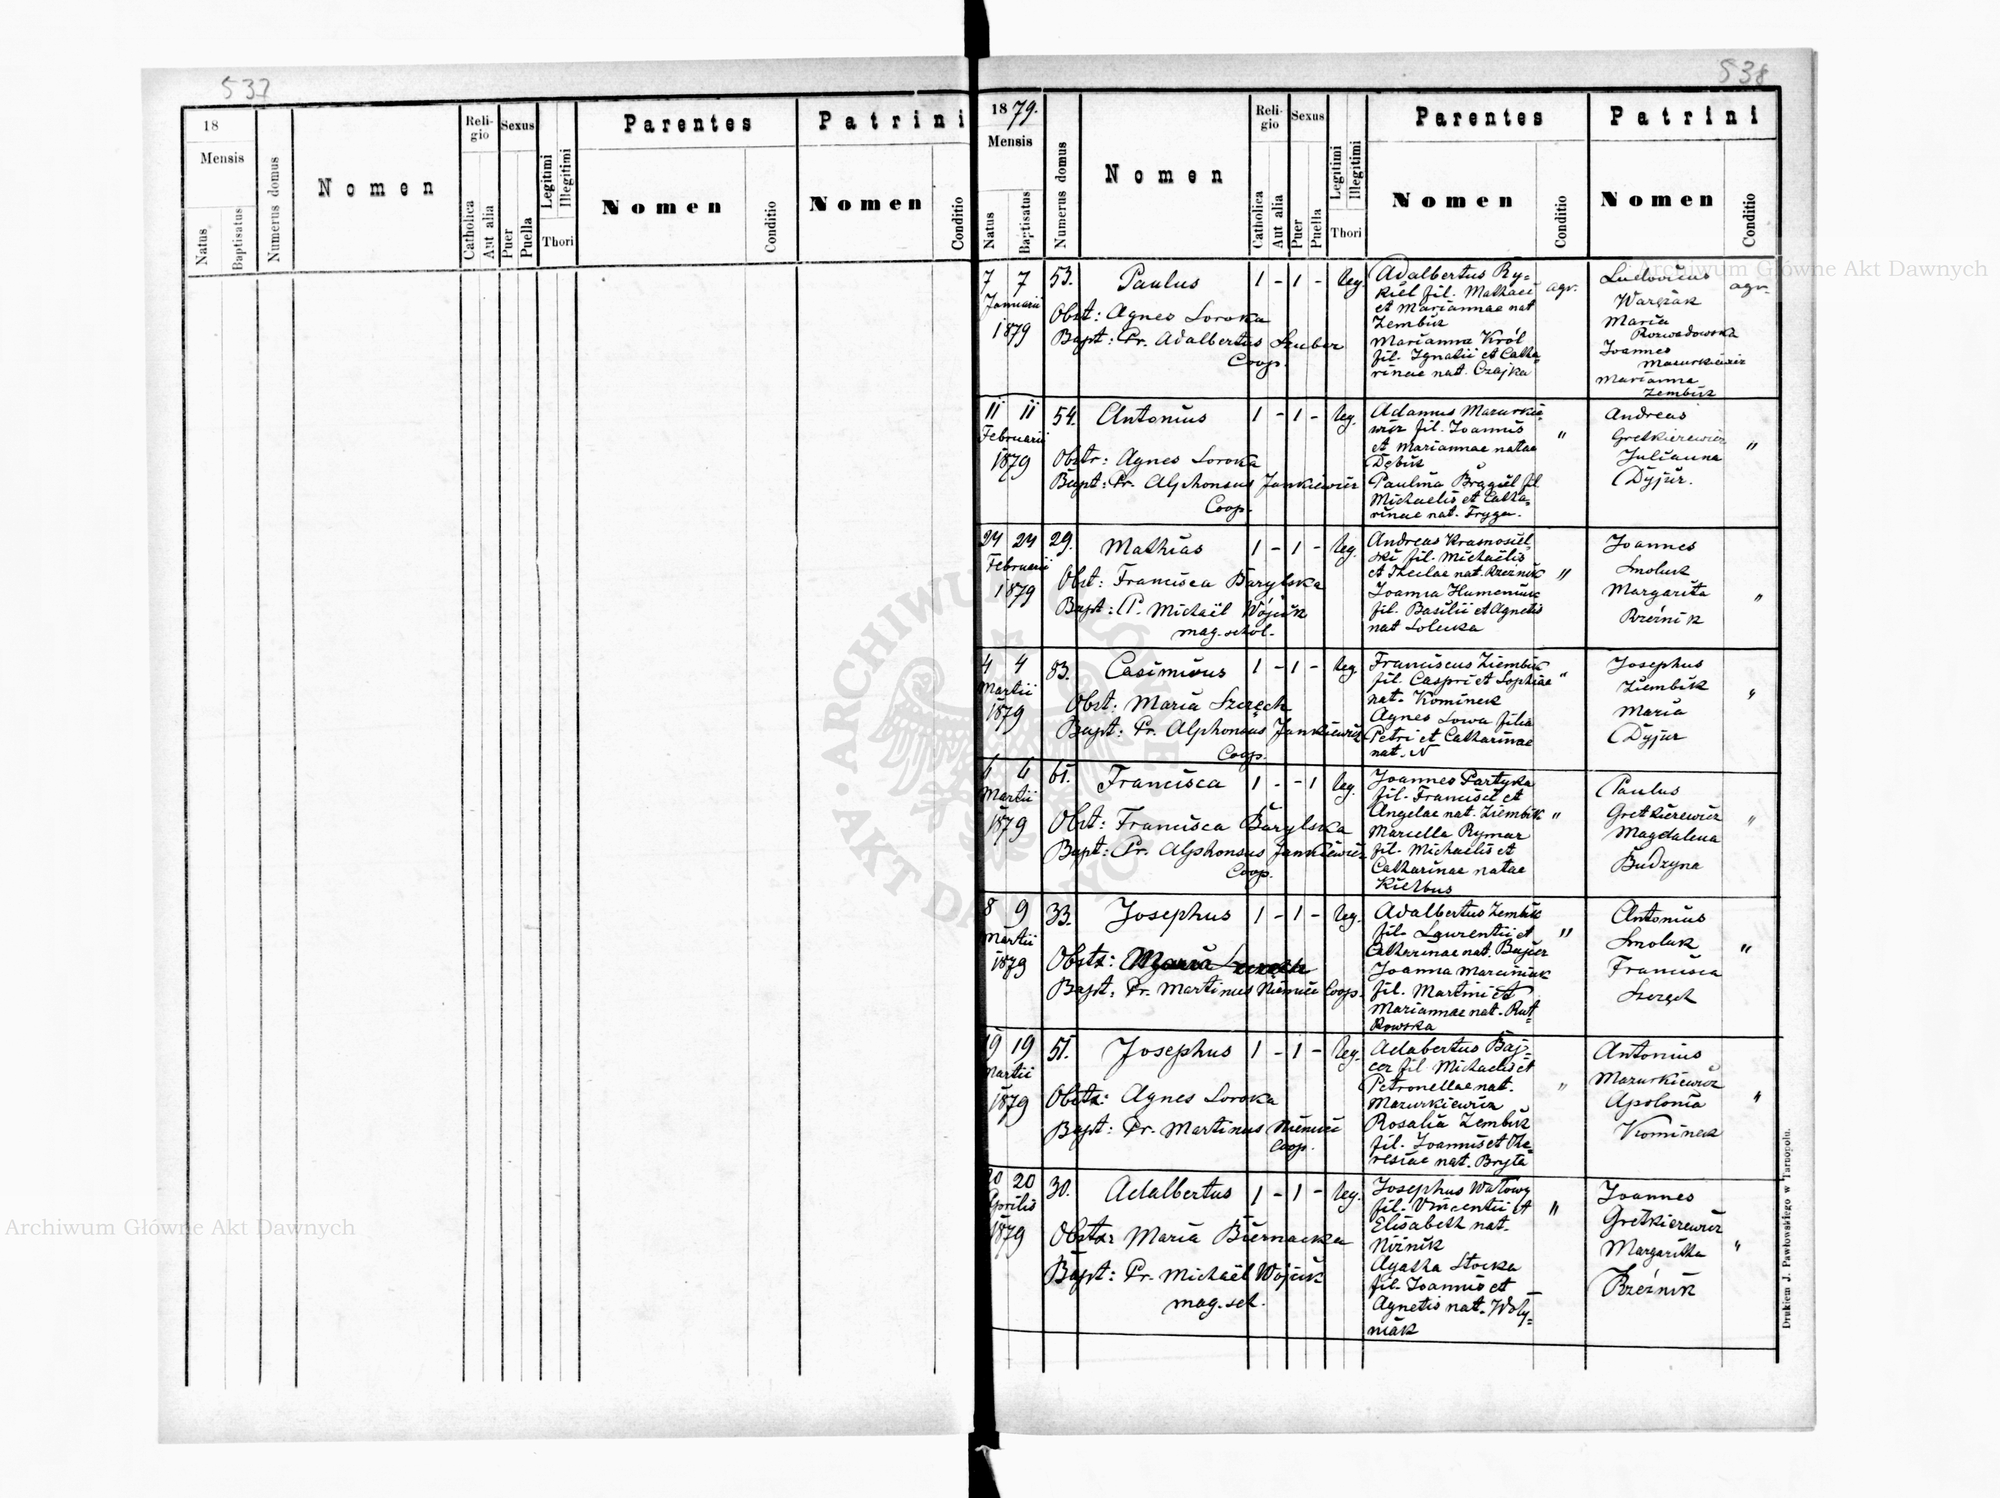 537
18
Mensis
Natus
Baptisatus
Numerus domus
Nomen
Religio
Catholica
Aut alia
Sexus
Puer
Puella
Legitimi
Illegitimi
Thori
Parentes
Nomen
Conditio
Patrini
Nomen
Conditio
538
1879.
Mensis
Natus
Baptisatus
Numerus domus
Nomen
Reli-
gio
Catholica
Aut alia
Sexus
Puer
Puella
Legitimi
Illegitimi
Thori
Parentes
Nomen
Conditio
Patrini
Nomen
Conditio
7 7 53. Paulus 1 - 1 - leg.
Januarii
1879
Obst: Agnes Soroka
Bapt: Pr. Adalbertus Szuber
Coop.
Adalbertus Ry-
kiel fil. Mathaei agr.
et Mariannae nat
Zembik
Marianna Król
fil. Ignatii et Catha-
rinae nat. Czajka
Ludovicus agr.
Warzak
Maria
Rozwadowska
Joannes
Mazurkiewicz
Marianna
Zembik
11 11 54. Antonius 1 - 1 - leg.
Februarii
1879
Obstr: Agnes Soroka
Bapt: Pr. Alphonsus Jankiewicz
Coop.
Adamus Mazurkie-
wicz fil. Joannis "
et Mariannae natae
Dębik
Paulina Brągiel fil.
Michaelis et Catha-
rinae nat. Fryga.
Andreas
Gretkierewicz "
Julianna
Dyjur.
24 24 29. Mathias 1 - 1 - leg.
Februarii
1879
Obst: Francisca Barylska
Bapt: P. Michaël Wójcik
mag. schol.
Andreas Krasnosiel-
ski fil. Michaelis
et Theclae nat. Rzeźnik "
Joanna Humeniuk
fil. Basilii et Agnetis
nat Solecka
Joannes
Smoluk
Margarita "
Rzeźnik
4 4 83. Casimirus 1 - 1 - leg.
Martii
1879
Obst: Maria Szczęch
Bapt: Pr. Alphonsus Jankiewicz
Coop.
Franciscus Ziembik
fil. Caspri et Sophiae "
nat. Kominek
Agnes Sowa filia
Petri et Catharinae
nat. N
Josephus
Ziembik "
Maria
Dyjur
6 6 61. Francisca 1 - - 1 leg.
Martii
1879
Obst: Francisca Barylska
Bapt: Pr. Alphonsus Jankiewicz
Coop.
Joannes Partyka
fil. Francisci et
Angelae nat. Ziembik "
Marcella Rymar
fil. Michaelis et
Catharinae natae
Kiełbus
Paulus
Gretkierewicz "
Magdalena
Budzyna
8 9 33. Josephus 1 - 1 - leg.
Martii
1879
Obstz:
Bapt: Pr. Martinus Niemiec Coop.
Adalbertus Zembik
fil. Laurentii et "
Catherinae nat. Bajcer
Joanna Marciniak
fil. Martini et
Mariannae nat. Rut-
kowska
Antonius
Smoluk "
Francisca
Szczęch
19 19 51. Josephus 1 - 1 - leg.
Martii
1879
Obstz: Agnes Soroka
Bapt: Pr. Martinus Niemiec
Coop.
Adabertus Baj-
cer fil. Michaelis et
Petronellae nat. "
Mazurkiewicz
Rosalia Zembik
fil. Joannis et The-
resiae nat. Bryta
Antonius
Mazurkiewicz
Apolonia "
Kominek
20 20 30. Adalbertus 1 - 1 - leg.
Aprilis
1879
Obstz: Maria Biernacka
Bapt: Pr. Michaël Wójcik
mag. sch.
Josephus Watowy
fil. Vincentii et "
Elisabeth nat.
Niźnik
Agatha Stocka
fil. Joannis et
Agnetis nat. Woły-
niak
Joannes
Gretkierewicz
Margaritha "
Rzeźnik
Drukiem J. Pawłowskiego w Tarnopolu.
Archiwum Główne Akt Dawnych
Archiwum Główne Akt Dawnych
ARCHIWUM GŁÓWNE AKT DAWNYCH